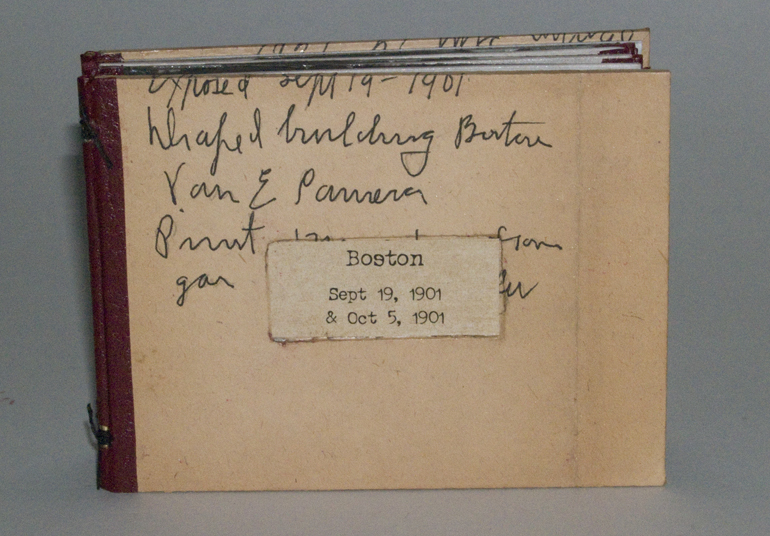 exposed Sept 19 - 1901
Draped building Boston
Van E Camera
Print from
Boston
Sept 19, 1901
& Oct 5, 1901